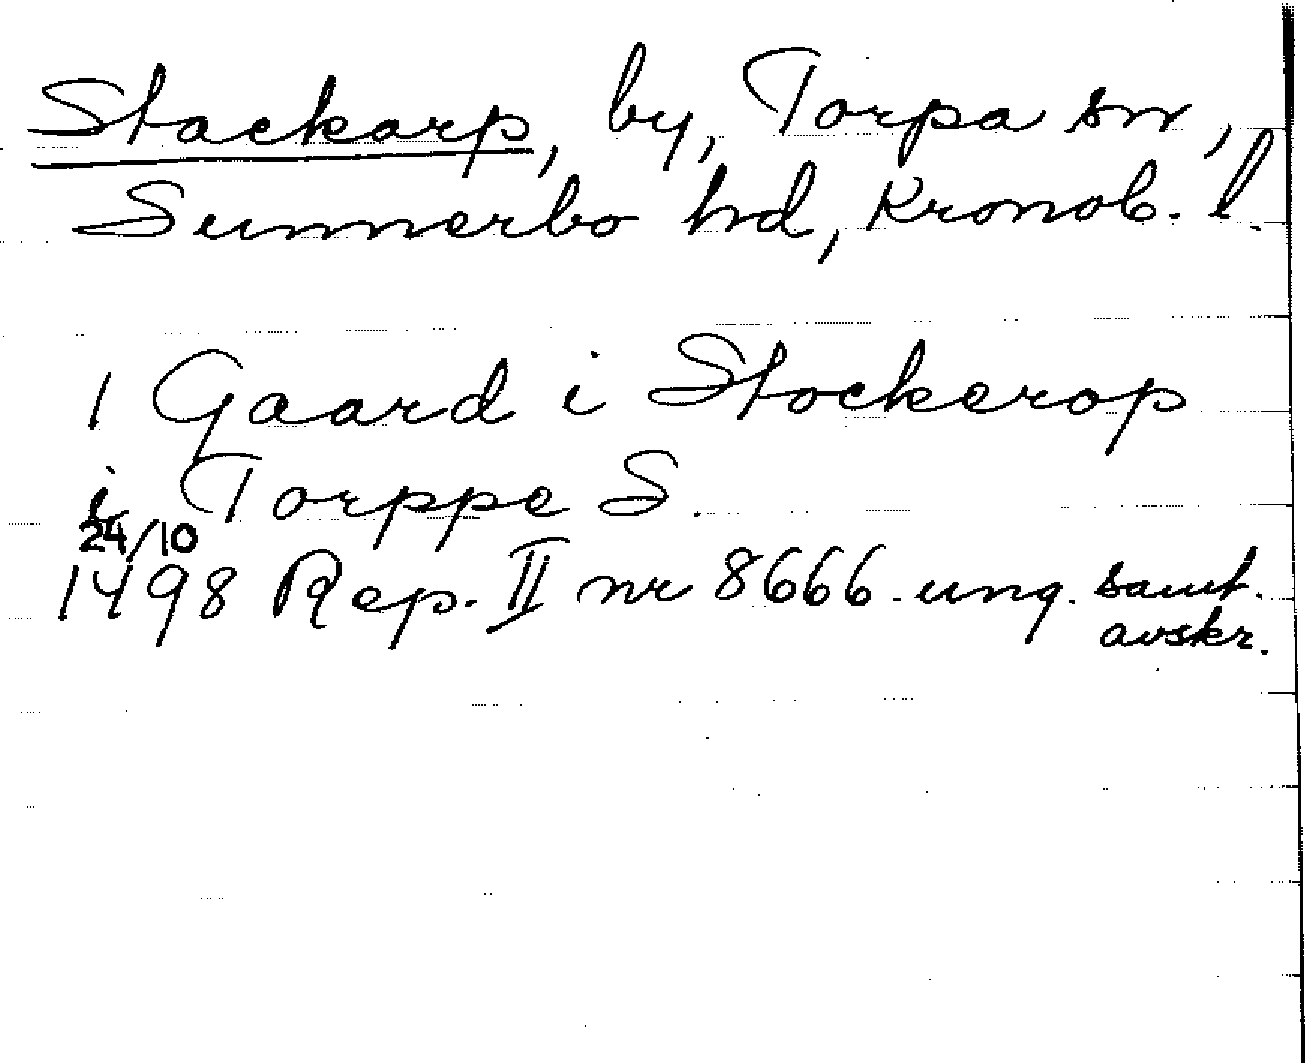 Stackarp, by, Torpa sn,
Sunnerbo hd, Kronob. l.
1 Gaard i Stockerop
i Torppe S.
24/10
1498 Rep. II nr 8666 ung. samt.
avskr.